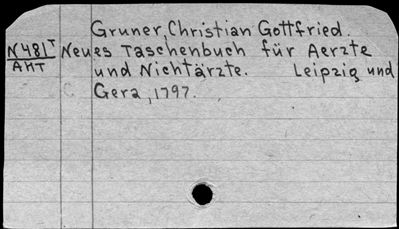 Gruner, Christian Gottfried.
N481ᵀ Neues Taschenbuch für Aerzte
AHT und Nichtärzte. Leipzig und
Gera, 1797.